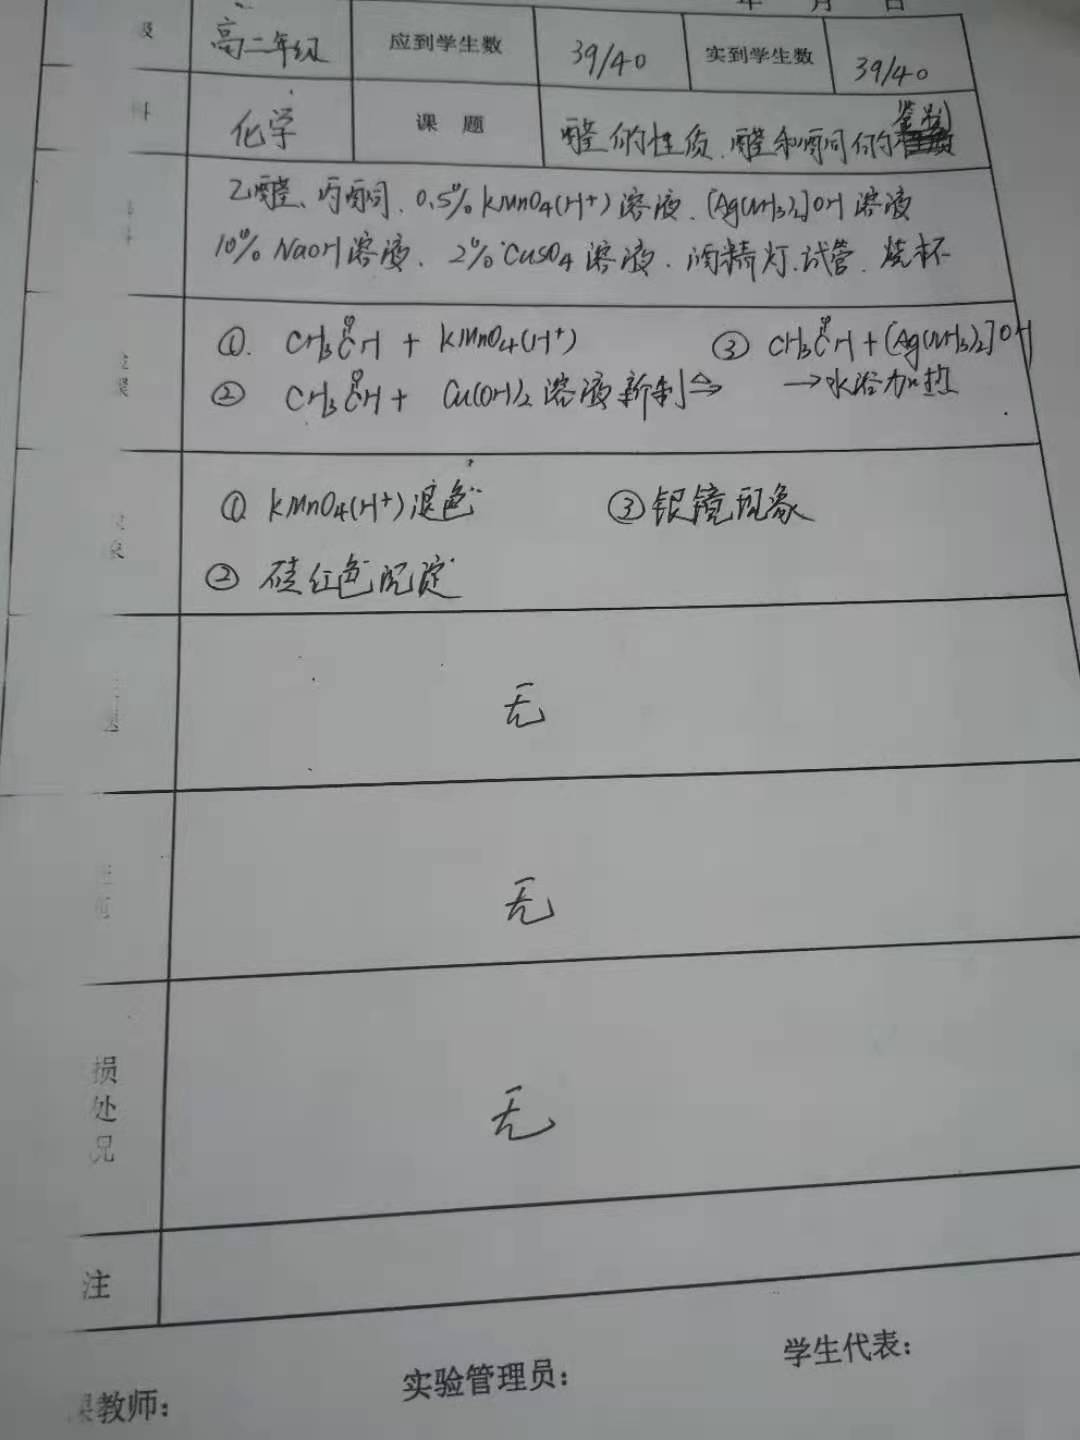 年 月 日
级 高二年级 应到学生数 39/40 实到学生数 39/40
科 化学 课 题 醛的性质、醛和丙酮的鉴别
乙醛、丙酮、0.5% KMnO4(H+) 溶液、[Ag(NH3)2]OH 溶液
10% NaOH溶液、2% CuSO4 溶液、酒精灯、试管、烧杯
①. CH3CHO + KMnO4(H+) ③ CH3CHO + [Ag(NH3)2]OH
② CH3CHO + Cu(OH)2 溶液新制 △→ →水浴加热
① KMnO4(H+)退色 ③银镜现象
② 砖红色沉淀
无
无
损
处
况
无
注
课教师：
实验管理员：
学生代表：